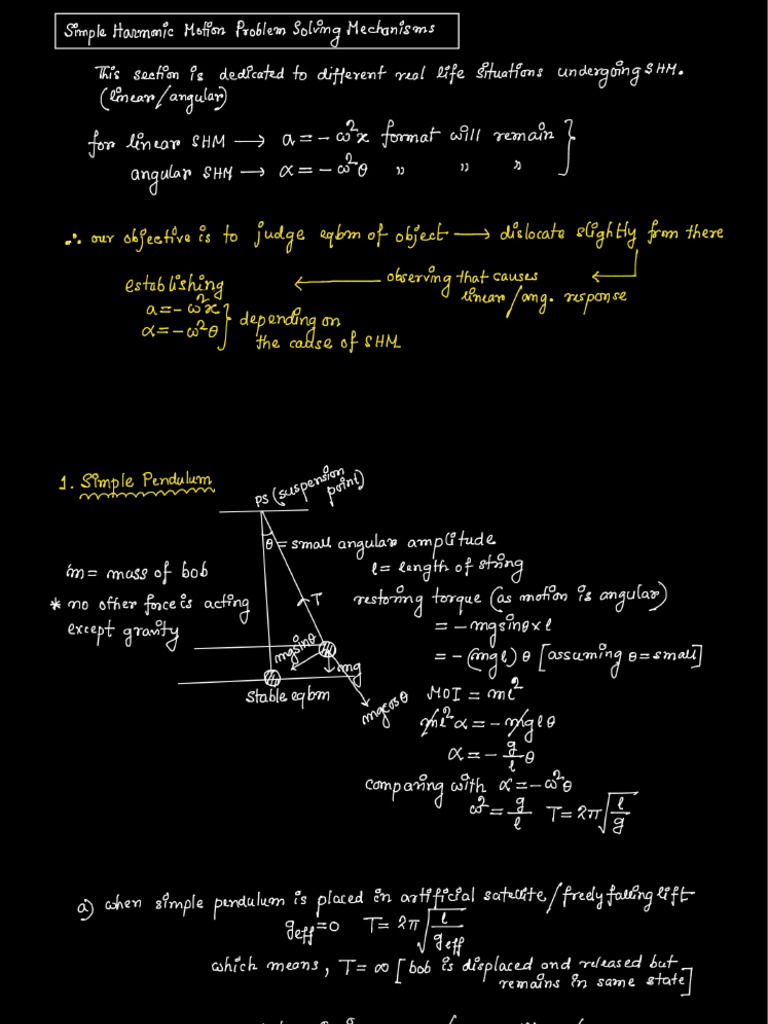 Simple Harmonic Motion Problem Solving Mechanisms
This section is dedicated to different real life situations undergoing SHM.
(linear/angular)
for linear SHM → a = -ω²x format will remain
angular SHM → α = -ω²θ " " "
∴ our objective is to judge eqbm of object → dislocate slightly from there
establishing ← observing that causes ←
linear/ang. response
a = -ω²x
α = -ω²θ } depending on
the cause of SHM
1. Simple Pendulum
PS (suspension point)
θ = small angular amplitude
l = length of string
m = mass of bob
* no other force is acting
except gravity
T
restoring torque (as motion is angular)
= -mgsinθ×l
= -(mgl)θ [assuming θ = small]
mgsinθ
mg
mgcosθ
stable eqbm
MOI = ml²
ml²α = -mglθ
α = -g/l θ
comparing with α = -ω²θ
ω² = g/l T = 2π√(l/g)
a) when simple pendulum is placed in artificial satellite/freely falling lift
g_eff = 0 T = 2π√(l/g_eff)
which means, T = ∞ [bob is displaced and released but
remains in same state]